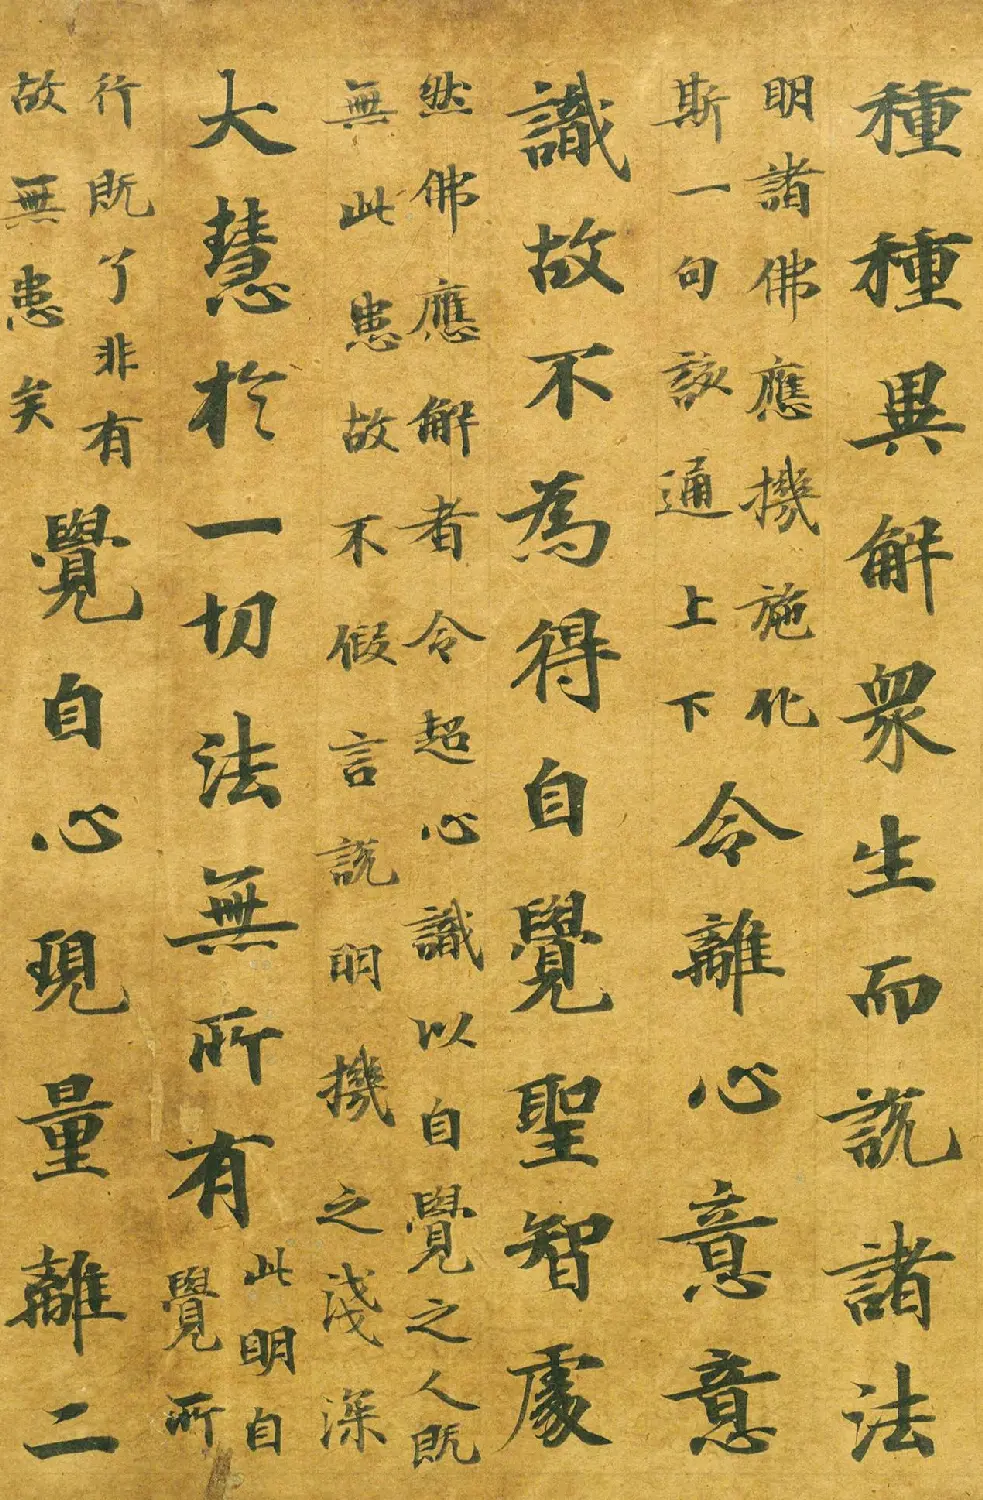 種種異解衆生而説諸法
明諸佛應機施化
斯一句該通上下
令離心意意
識故不為得自覺聖智處
然佛應解者令超心識以自覺之人既
無此患故不假言説明機之淺深
大慧於一切法無所有
此明自
覺所
行既了非有
故無患矣
覺自心現量離二